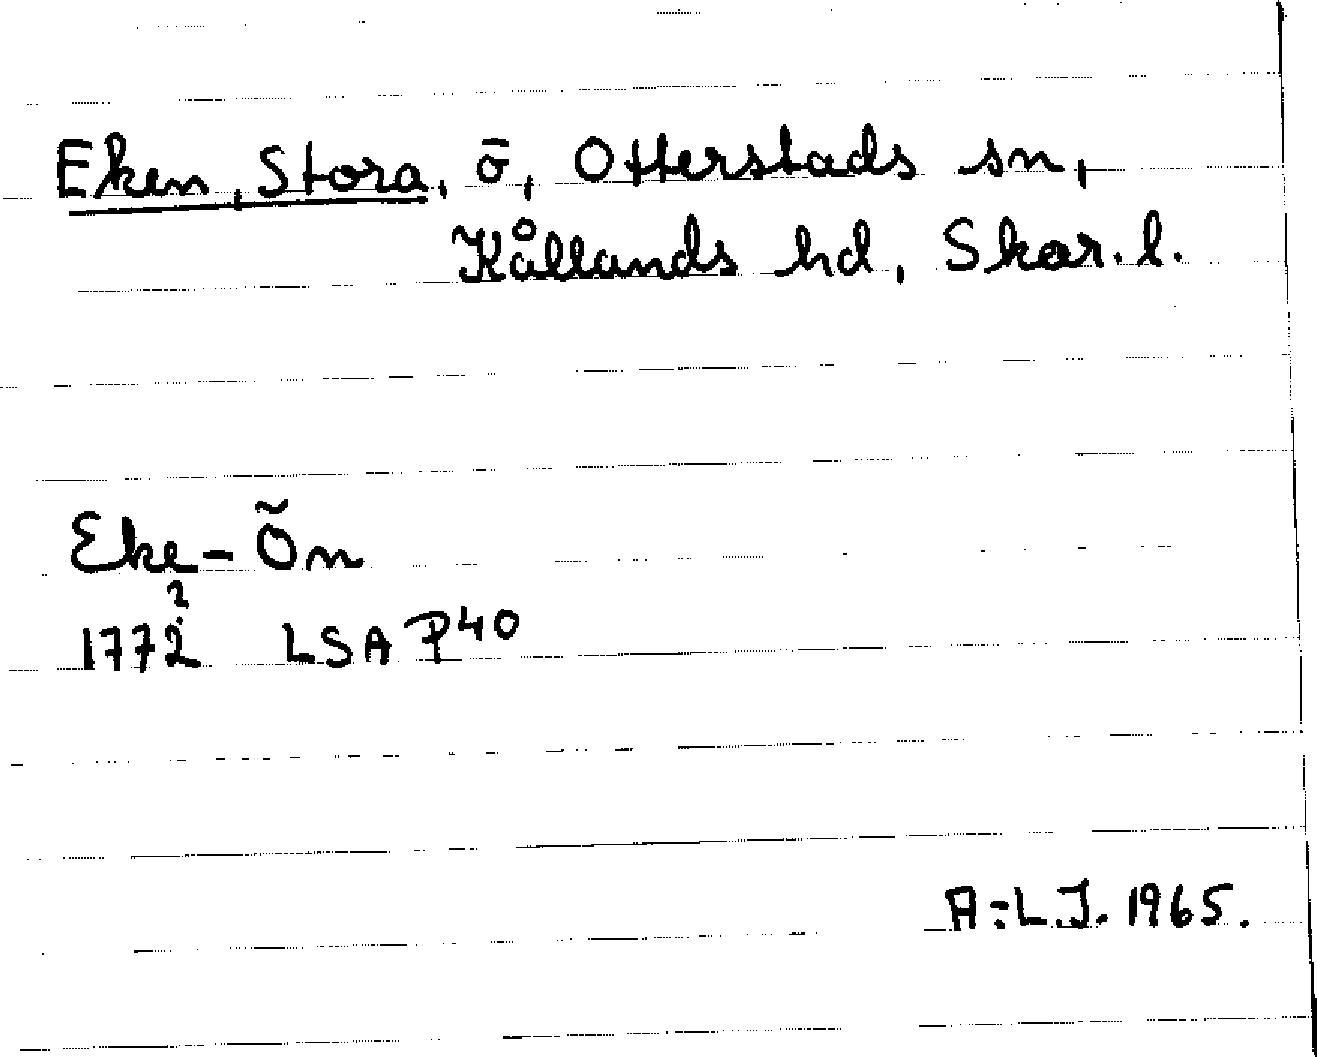 Eken, Stora, ö, Otterstads sn,
Kållands hd, Skar. l.
Eke-Ön
1772? LSA P40
A:L.J. 1965.